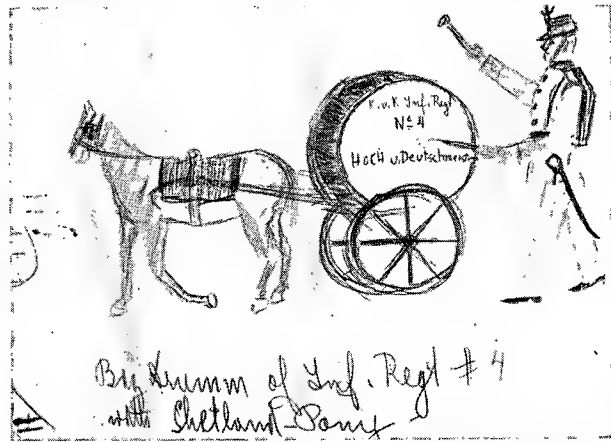 K. u. K Inf. Regt
No 4
HOCH u. Deutschmeis
Big Drumm of Inf. Regt # 4
with Shetland-Pony